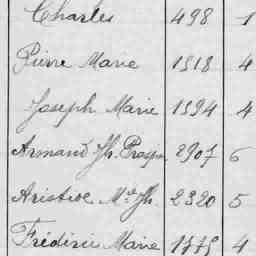 Charles 498 1
Pierre Marie 1818 4
Joseph Marie 1894 4
Armand Jh. Prosper 2907 6
Aristide Mie Jh. 2320 5
Frédéric Marie 1775 4